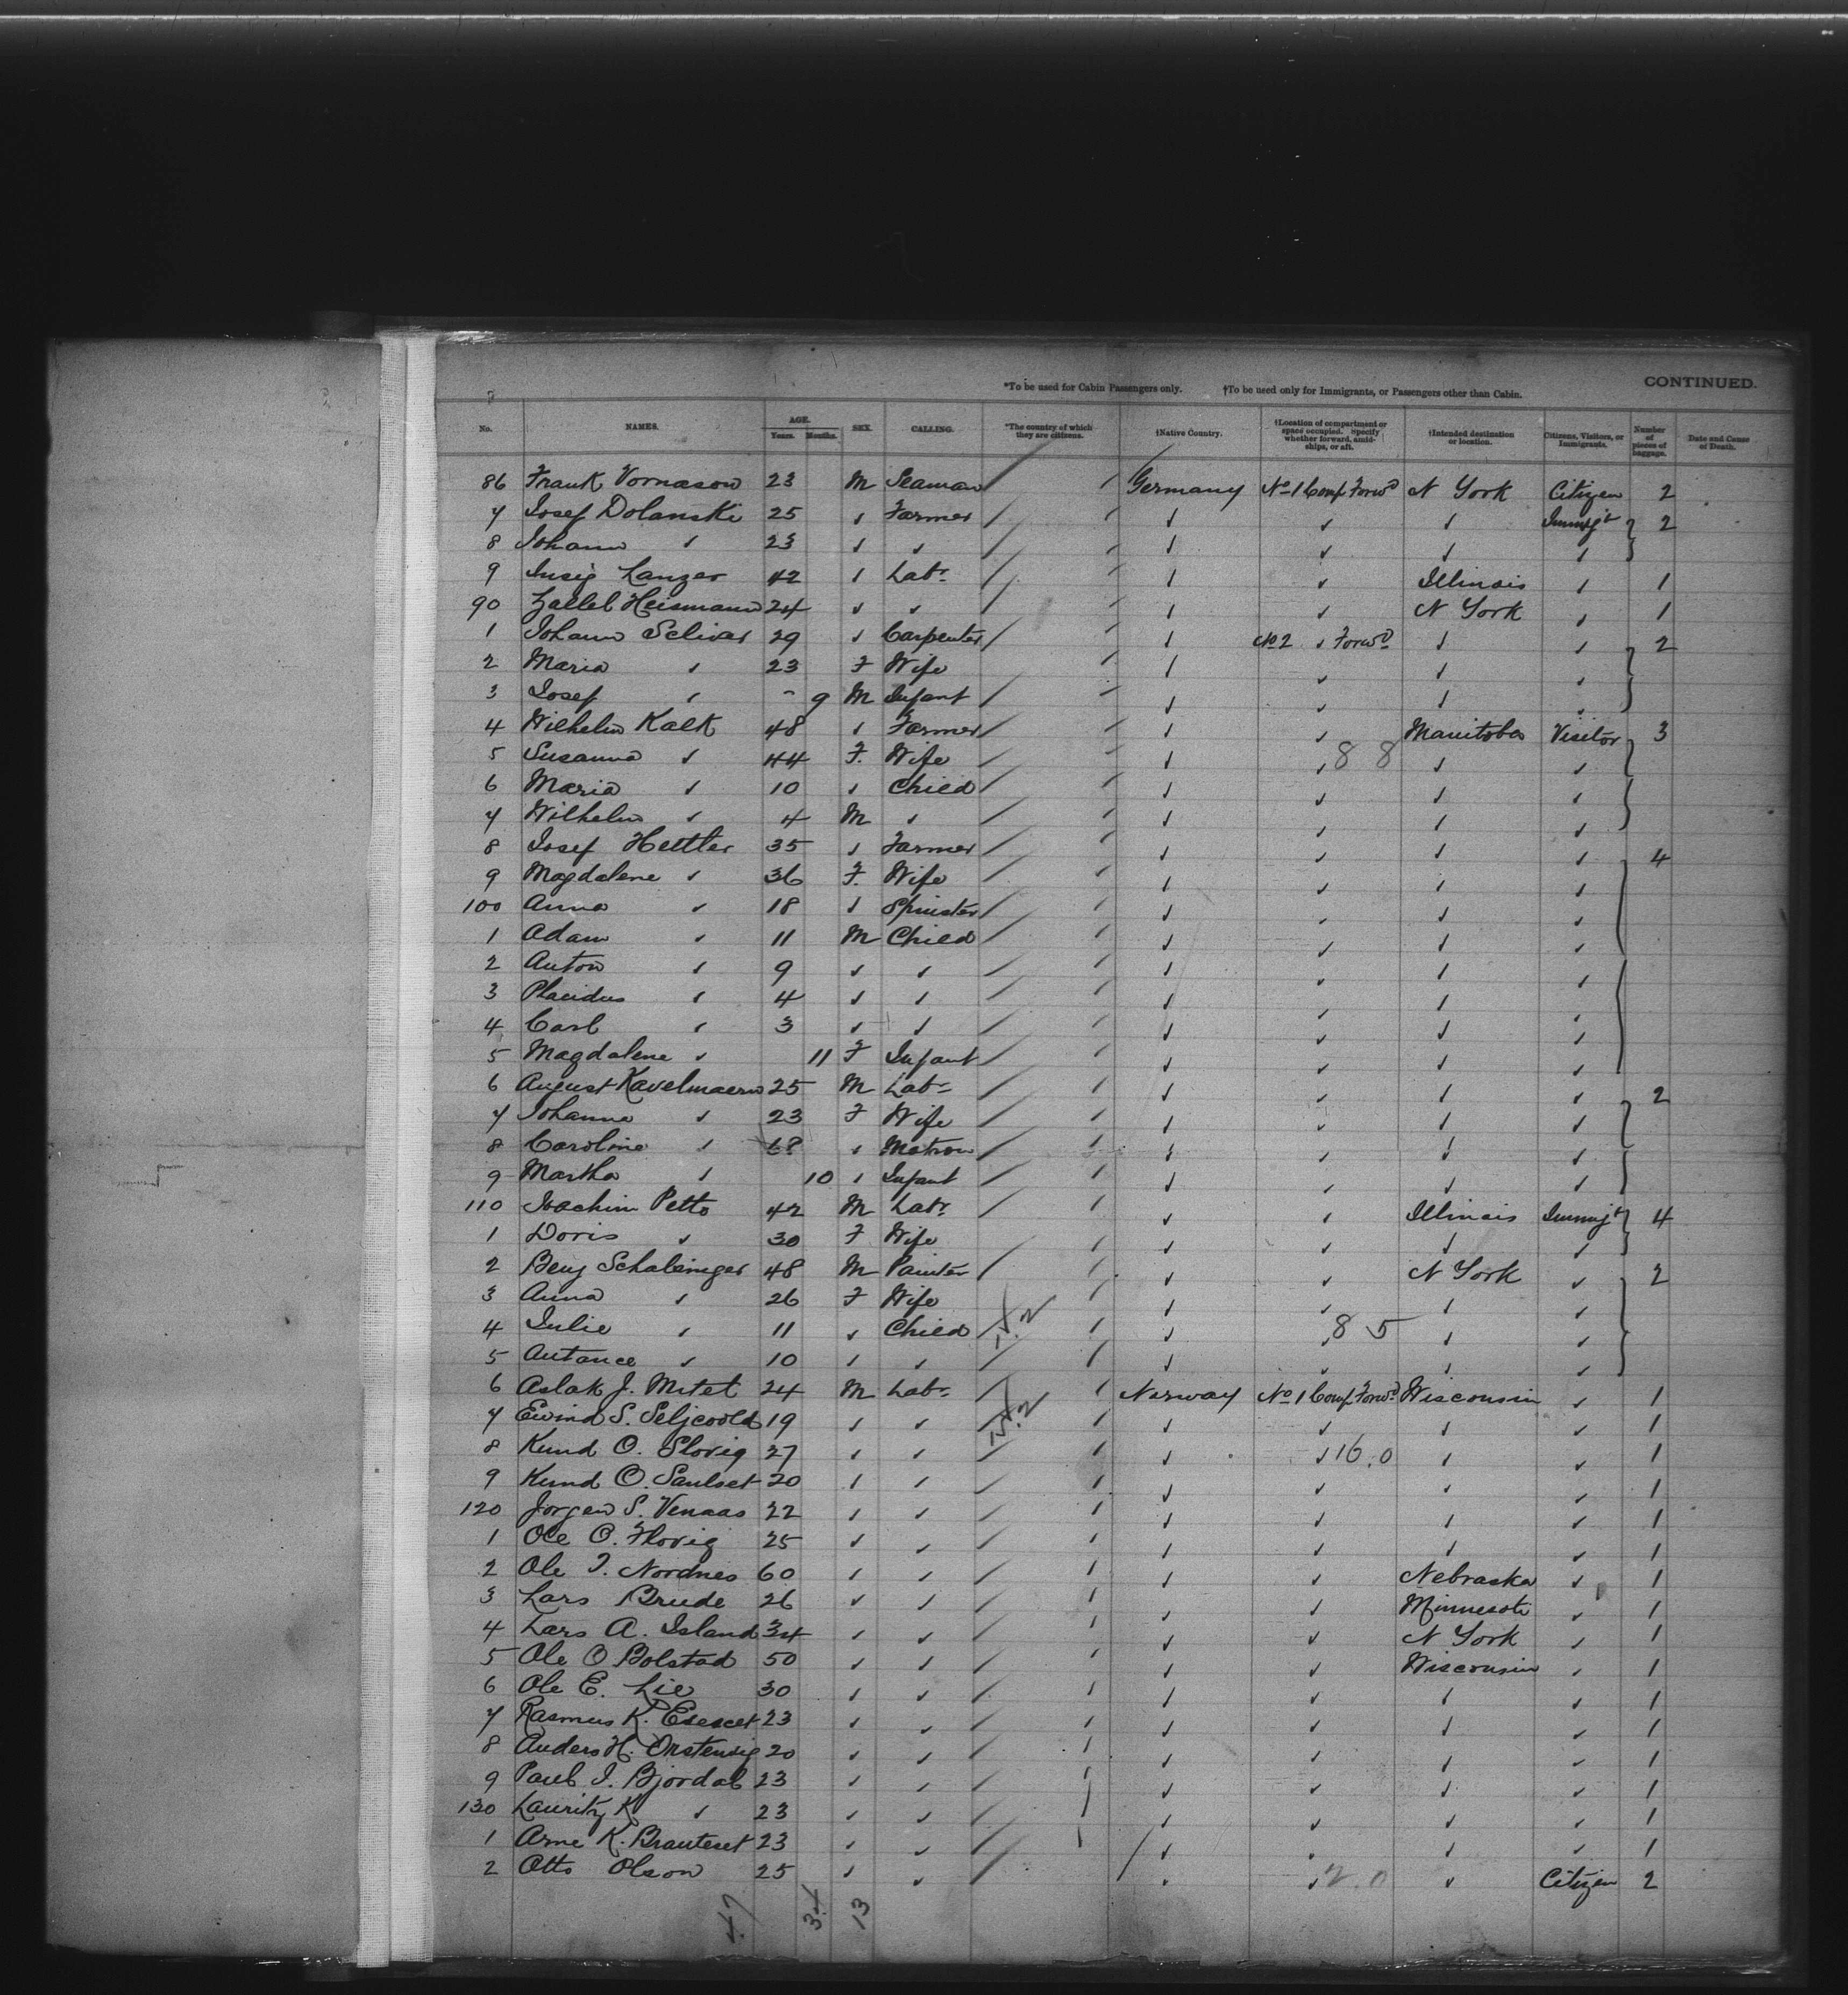 CONTINUED.
*To be used for Cabin Passengers only. †To be used only for Immigrants, or Passengers other than Cabin.
No. NAMES. AGE. Years. Months. SEX. CALLING. *The country of which they are citizens. †Native Country. †Location of compartment or space occupied. Specify whether forward, amidships, or aft. †Intended destination or location. Citizens, Visitors, or Immigrants. Number of pieces of baggage. Date and Cause of Death.
86 Frank Vornason 23 M Seaman Germany No 1 Comp Forwd N York Citizen 2
7 Josef Dolanski 25 " Farmer " " " Immigt 2
8 Johann " 23 " " " " " "
9 Lanzer 42 " Labr " " Illinois " 1
90 Heismann 24 " " " " N York " 1
1 Johann Selivar 29 " Carpenter " No 2 " Forwd " " 2
2 Maria " 23 F Wife " " " "
3 Josef " - 9 M Infant " " " "
4 Wilhelm Kalk 48 " Farmer " " Manitoba Visitor 3
5 Susanna " 44 F. Wife " " 8 8 " "
6 Maria " 10 " Child " " " "
7 Wilhelm " 4 M " " " " "
8 Josef Hettler 35 " Farmer " " " " 4
9 Magdalene " 36 F. Wife " " " "
100 Anna " 18 " Spinster " " " "
1 Adam " 11 M Child " " " "
2 Anton " 9 " " " " " "
3 Placidus " 4 " " " " " "
4 Carl " 3 " " " " " "
5 Magdalene " 11 F Infant " " " "
6 August Kavelmaern 25 M Labr " " " " 2
7 Johanna " 23 F Wife " " " "
8 Caroline " 68 " Matron " " " "
9 Martha " 10 " Infant " " " "
110 Joachim Petto 42 M Labr " " Illinois Immigt 4
1 Doris " 30 F Wife " " " "
2 Benj Schabinger 48 M Painter " " N York " 2
3 Anna " 26 F Wife " " " "
4 Julie " 11 " Child " " 8 5 " "
5 Antance " 10 " " " " " "
6 Aslak J. Mitet 24 M Labr Norway No 1 Comp Forwd Wisconsin " 1
7 Eivind S. Seljcoold 19 " " " " " " 1
8 Knud O. Slovig 27 " " " " 16.0 " " 1
9 Knud O. Saulset 20 " " " " " " 1
120 Jorgen S. Venaas 22 " " " " " " 1
1 Ole O. Flovig 25 " " " " " " 1
2 Ole T. Nordnes 60 " " " " Nebraska " 1
3 Lars Brude 26 " " " " Minnesota " 1
4 Lars A. Island 34 " " " " N York " 1
5 Ole O Bolstad 50 " " " " Wisconsin " 1
6 Ole E. Lie 30 " " " " " " 1
7 Rasmus K. 23 " " " " " " 1
8 Anders H. Orstenvig 20 " " " " " " 1
9 Paul I. Bjordal 23 " " " " " " 1
130 Lauritz K " 23 " " " " " " 1
1 Arne K. Brauteset 23 " " " " " " 1
2 Otto Olson 25 " " " " 2.0 " Citizen 2
47 34 13